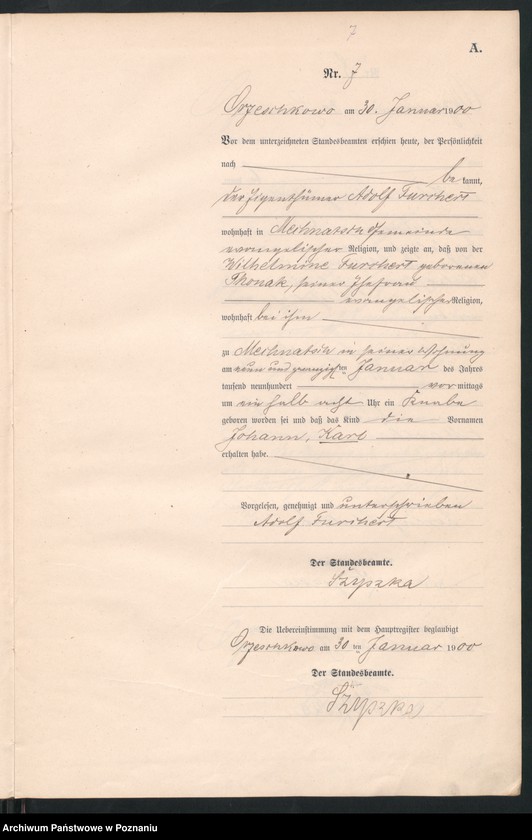 7
A.
Nr. 7
Orzeschkowo am 30. Januar 1900
Vor dem unterzeichneten Standesbeamten erschien heute, der Persönlichkeit
nach
be kannt,
der Eigenthümer Adolf Furchert
wohnhaft in Mechnatsch Gemeinde
evangelischer Religion, und zeigte an, daß von der
Wilhelmine Furchert geborenen
Thonak, seiner Ehefrau
evangelischer Religion,
wohnhaft bei ihm
zu Mechnatsch in seiner Wohnung
am neun und zwanzigsten Januar des Jahres
tausend neunhundert vor mittags
um ein halb acht Uhr ein Knabe
geboren worden sei und daß das Kind die Vornamen
Johann, Karl
erhalten habe.
Vorgelesen, genehmigt und unterschrieben
Adolf Furchert
Der Standesbeamte.
Szyszka
Die Uebereinstimmung mit dem Hauptregister beglaubigt
Orzeschkowo am 30 ten Januar 1900
Der Standesbeamte.
Szyszka
Archiwum Państwowe w Poznaniu